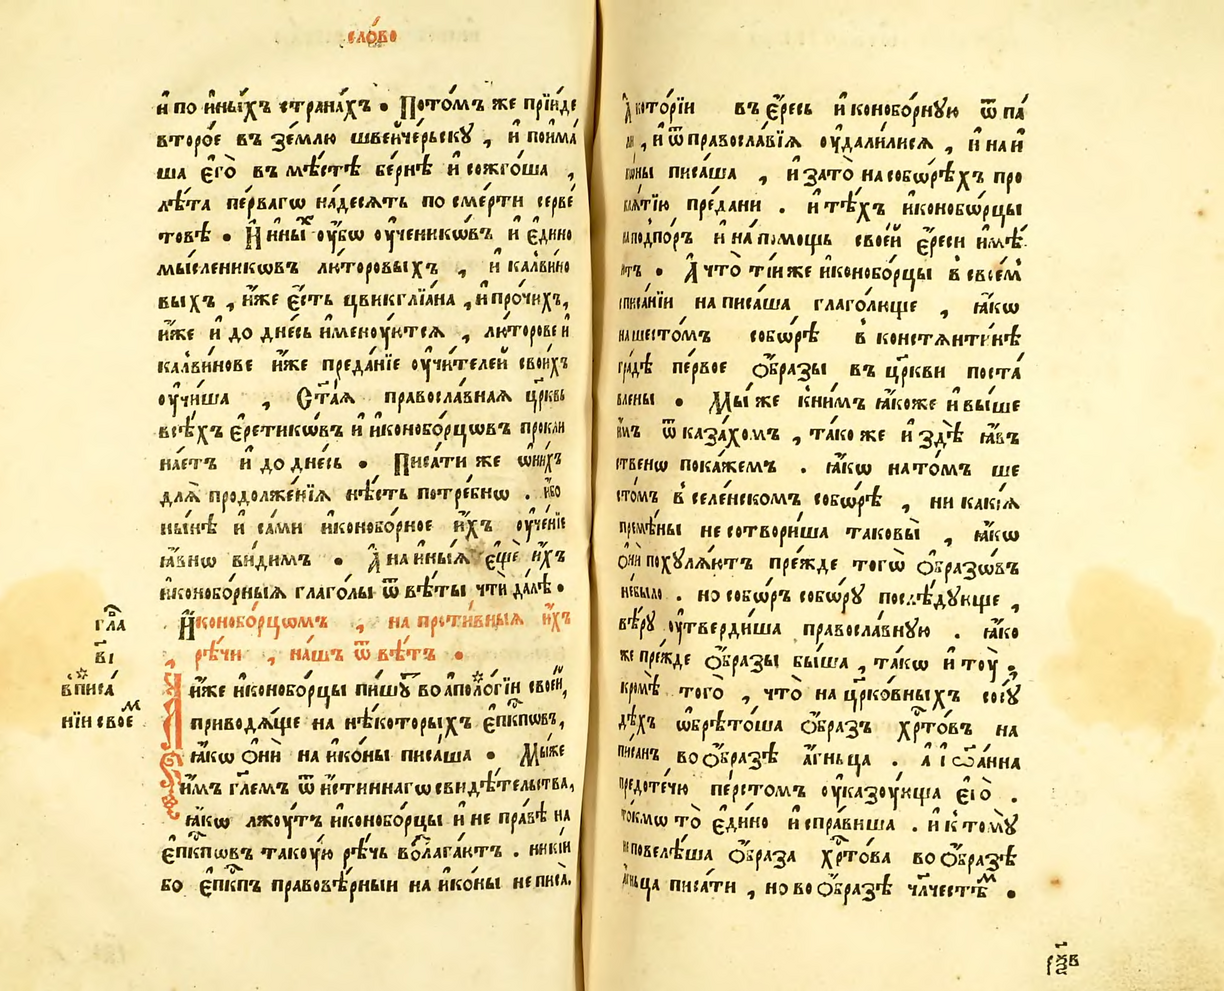 сло́во
и҆ по и҆ны́хъ страна́хъ . Пото́мъ же прїи́де
второ́е въ зе́млю швейче́рьскꙋ , и҆ пои́ма
ша є҆го̀ въ мѣ́стѣ бе́рнѣ и҆ сожго́ша ,
лѣ́та пе́рвагѡ на́десѧть по сме́рти серве́
товѣ . И҆ ины́х оу҆́бѡ оу҆ченикѡ́въ и҆ є҆ди́но
мы́сленикѡвъ лю́торовыхъ , и҆ калви́но
выхъ , и҆́же є҆́сть цвинглїа́на , и҆ про́чихъ ,
и҆́же и҆ до дне́сь и҆мену́ютсѧ , лю́торове и҆
калви́нове и҆́же преда́нїе оу҆чи́телей свои́хъ
оу҆чи́ша , Ст҃а́ѧ правосла́внаѧ цр҃ковь
всѣ́хъ є҆рети́кѡвъ и҆ и҆конобо́рцѡвъ прокли
на́етъ и҆ до дне́сь . Писа́ти же ѡ҆ни́хъ
длѧ̀ продолже́нїѧ нѣ́сть потре́бнѡ . и҆́бо
ны́нѣ и҆ са́ми и҆конобо́рное и҆́хъ оу҆че́нїе
ꙗ҆́внѡ ви́димъ . А҆ на и҆ны́ѧ є҆щѐ и҆́хъ
и҆конобо́рныѧ глаго́лы ѿвѣ́ты чтѝ да́лѣ .
И҆конобо́рцѡмъ , на проти́вныѧ и҆́хъ
рѣ́чи , на́шъ ѿвѣ́тъ .
гла
в҃і
в писа́
нїи свое
А҆ и҆́же и҆конобо́рцы пи́шꙋт во апо́логїи свое́й ,
приводѧ́ще на нѣ́которыхъ є҆пк҃пѡвъ ,
ꙗ҆́кѡ ѻ҆нѝ на и҆ко́ны писа́ша . Мы́ же
и҆̀мъ гл҃емъ ѿ и҆́стиннагѡ свидѣ́тельства ,
ꙗ҆́кѡ лжꙋ́тъ и҆конобо́рцы и҆ не пра́вѣ на
є҆пк҃пѡвъ такову́ю рѣ́чь возлага́ютъ . никі́й
бо є҆пк҃пъ правовѣ́рный на и҆ко́ны не писа̀ .
А҆ кото́рїи въ є҆́ресь и҆конобо́рнꙋю ѿпа́
ли , и҆ ѿ правосла́вїѧ оу҆дали́лисѧ , и҆ на и҆
ко́ны писа́ша , и҆ за то̀ на собѡ́рѣхъ про
клѧ́тїю пре́дани . и҆ тѣ́хъ и҆конобѡ́рцы
на подпо́ръ и҆ на по́мощь свое́й є҆́реси и҆мѣ́
ютъ . А҆ что̀ ті́и же и҆конобо́рцы в свое́м
списа́нїи написа́ша глаго́люще , ꙗ҆́кѡ
на шесто́мъ собо́рѣ в константи́нѣ
гра́дѣ пе́рвое ѻ҆́бразы въ цр҃кви поста́
влены . Мы́ же к ни́мъ ꙗ҆́коже и҆ вы́ше
и҆̀мъ ѿказа́хомъ , та́ко же и҆ здѣ̀ ꙗ҆́въ
ственѡ пока́жемъ . ꙗ҆́кѡ на то́мъ ше
сто́мъ вселе́нскомъ собѡ́рѣ , ни какі́ѧ
премѣ́ны не сотвори́ша таковы̀ , ꙗ҆́кѡ
ѻ҆нѝ похулѧ́ютъ пре́жде тогѡ̀ ѻ҆́бразѡвъ
не́было . но собѡ́ръ собѡ́рꙋ послѣ́дꙋюще ,
вѣ́рꙋ оу҆тверди́ша правосла́внꙋю . ꙗ҆́ко
же пре́жде ѻ҆́бразы бы́ша , та́кѡ и҆ тоу̀ ,
кромѣ̀ того̀ , что̀ на цр҃ко́вныхъ сосꙋ́
дѣхъ ѡ҆брѣто́ша ѻ҆́бразъ хр҃то́въ на
пи́санъ во ѻ҆́бразѣ а҆́гньца . а҆ і҆ѡа́нна
предоте́чю пе́рстомъ оу҆казу́юща є҆го̀ .
то́кмѡ то̀ є҆ди́но и҆спра́виша . и҆ к томꙋ̀
не повелѣ́ша ѻ҆́браза хр҃то́ва во ѻ҆́бразѣ
а҆́гньца писа́ти , но во ѻ҆́бразѣ чл҃честѣм .